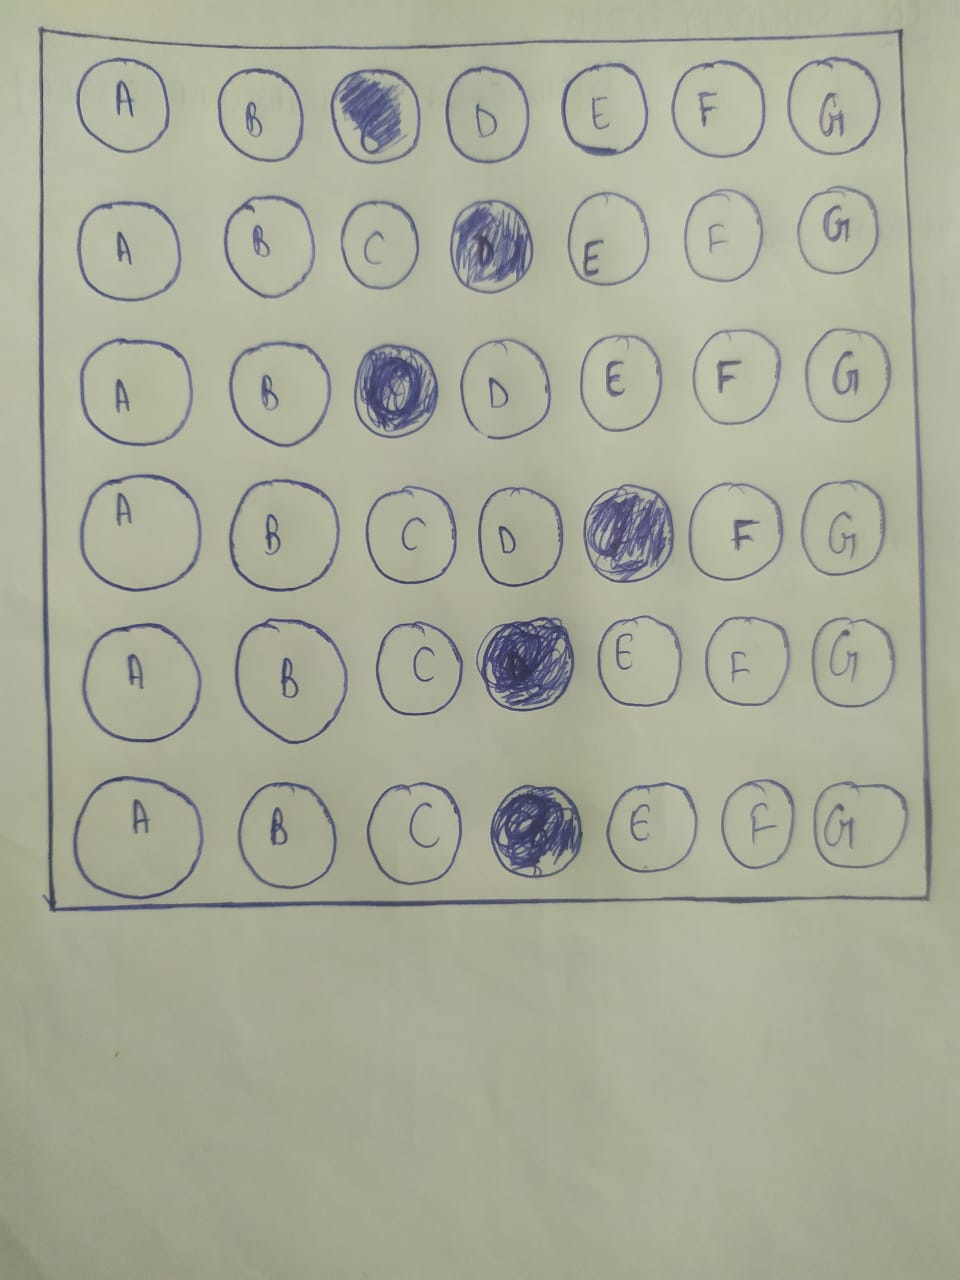 A B D E F G
A B C D E F G
A B D E F G
A B C D F G
A B C D E F G
A B C E F G